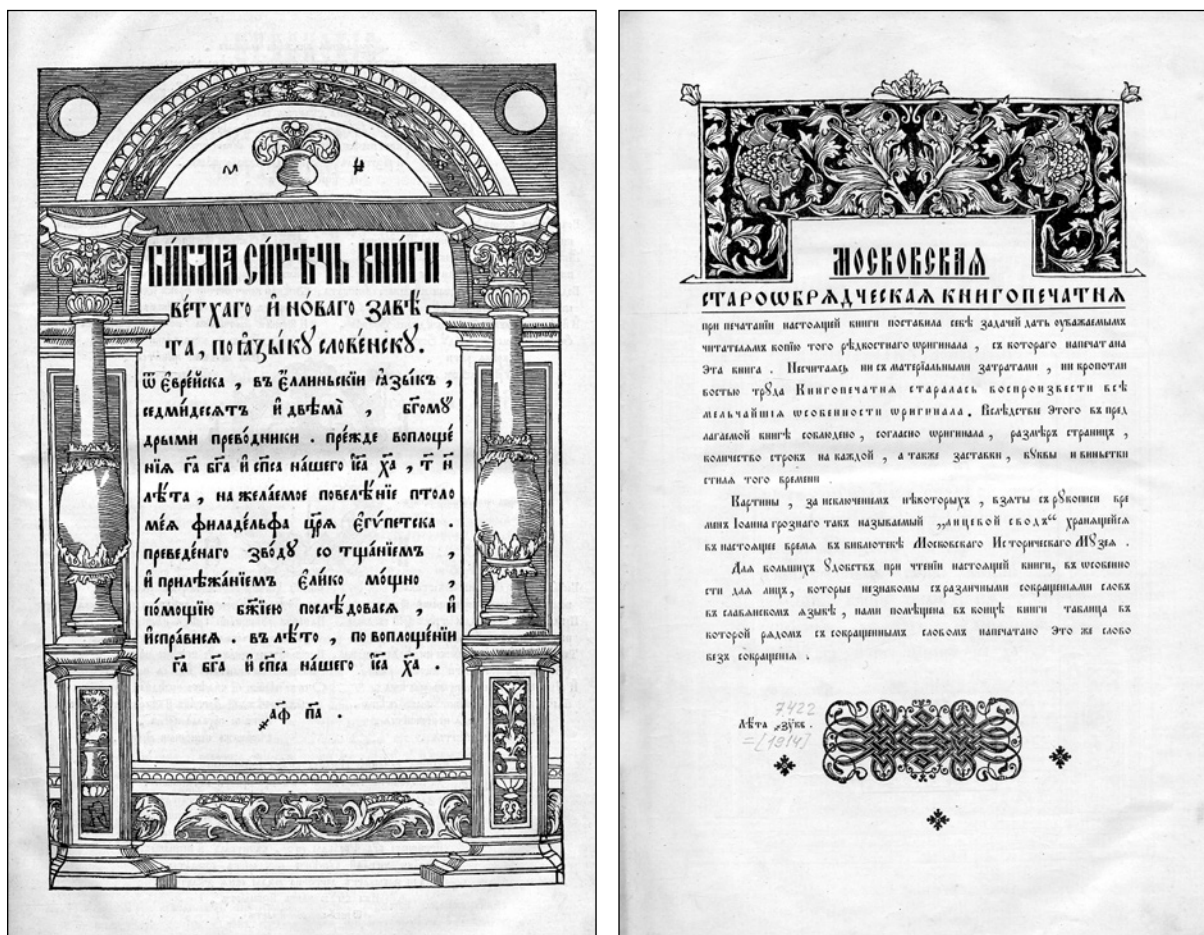 БИ́БЛІА СИ́РѢЧЬ КНИ́ГИ
ве́тхаго и҆ но́ваго завѣ́
та, по ꙗ҆зы́кꙋ слове́нскꙋ.
ѿ є҆вре́йска , въ є҆́ллиньскїи ꙗ҆зы́къ ,
седмидеса́тъ и҆ двѣма̀ , бг҃омꙋ
дрыми преводники . пре́жде воплоще́
нїѧ га҃ бг҃а и҆ сп҃са на́шего і҆с҃а ха҃ , т҃ н҃
лѣ́та , на жела́емое повелѣ́нїе птоло
ме́ѧ филаде́льфа цр҃ѧ є҆гѵ́петска .
преведе́наго зво́дꙋ со тща́нїемъ ,
и҆ прилѣжа́нїемъ є҆ли́ко мо́щно ,
по́мощїю бж҃їею послѣ́довасѧ , и҆
и҆спра́висѧ . въ лѣ́то , по воплоще́нїи
га҃ бг҃а и҆ сп҃са на́шего і҆с҃а ха҃ .
҂аф҃ п҃а .
МОСКОВСКАѦ
СТАРОѠБРѦДЧЕСКАѦ КНИГОПЕЧАТНѦ
при печатанїи настоѧщей книги поставила себѣ задачей дать оуважаемымъ
читателѧмъ копїю того рѣдкостнаго ѡригинала , съ котораго напечатана
Эта книга . Несчитаѧсь ни съ матерїальными затратами , ни кропотли
востью трꙋда Книгопечатнѧ старалась воспроизвести всѣ
мельчайшїѧ ѡсобенности ѡригинала . Вслѣдствїе Этого въ пред
лагаемой книгѣ соблюдено , согласно ѡригинала , размѣръ страницъ ,
количество строкъ на каждой , а также заставки , бꙋквы и виньетки
стилѧ того времени .
Картины , за исключенїемъ нѣкоторыхъ , взѧты съ рꙋкописи вре
менъ Іоанна грознаго такъ называемый „лицевой сводъ“ хранѧщейсѧ
въ настоѧщее времѧ въ библїотекѣ Московскаго Историческаго Мꙋзеѧ .
Длѧ большихъ Ꙋдобствъ при чтенїи настоѧщей книги, въ ѡсобенно
сти длѧ лицъ , которые незнакомы съ различными сокращенїѧми словъ
въ славѧнскомъ ѧзыкѣ , нами помѣщена въ концѣ книги таблица въ
которой рѧдомъ съ сокращеннымъ словомъ напечатано Это же слово
безъ сокращенїѧ .
7422
Лѣ́та ҂зѵ҃кв .
=[1914]